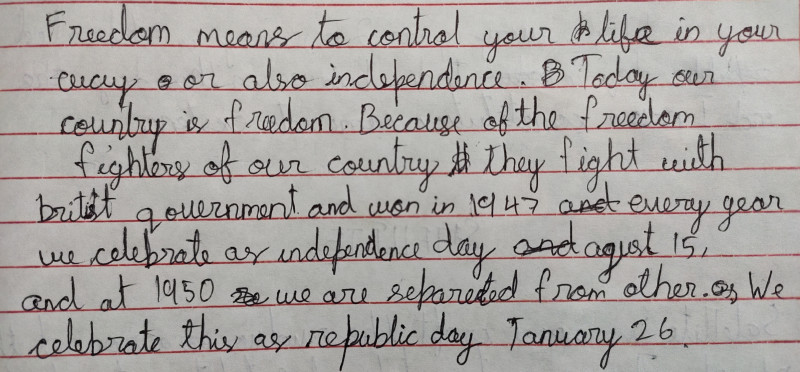 Freedom means to control your life in your
way or also independence. Today our
country is freedom. Because of the freedom
fighters of our country they fight with
britist government and won in 1947 and every year
we celebrate as independence day and agust 15,
and at 1950 we are separeted from other. We
celebrate this as republic day January 26.